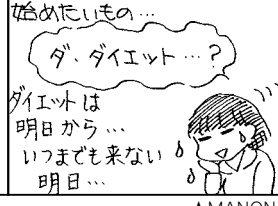 始めたいもの…
ダ、ダイエット…?
ダイエットは
明日から…
いつまでも来ない
明日…